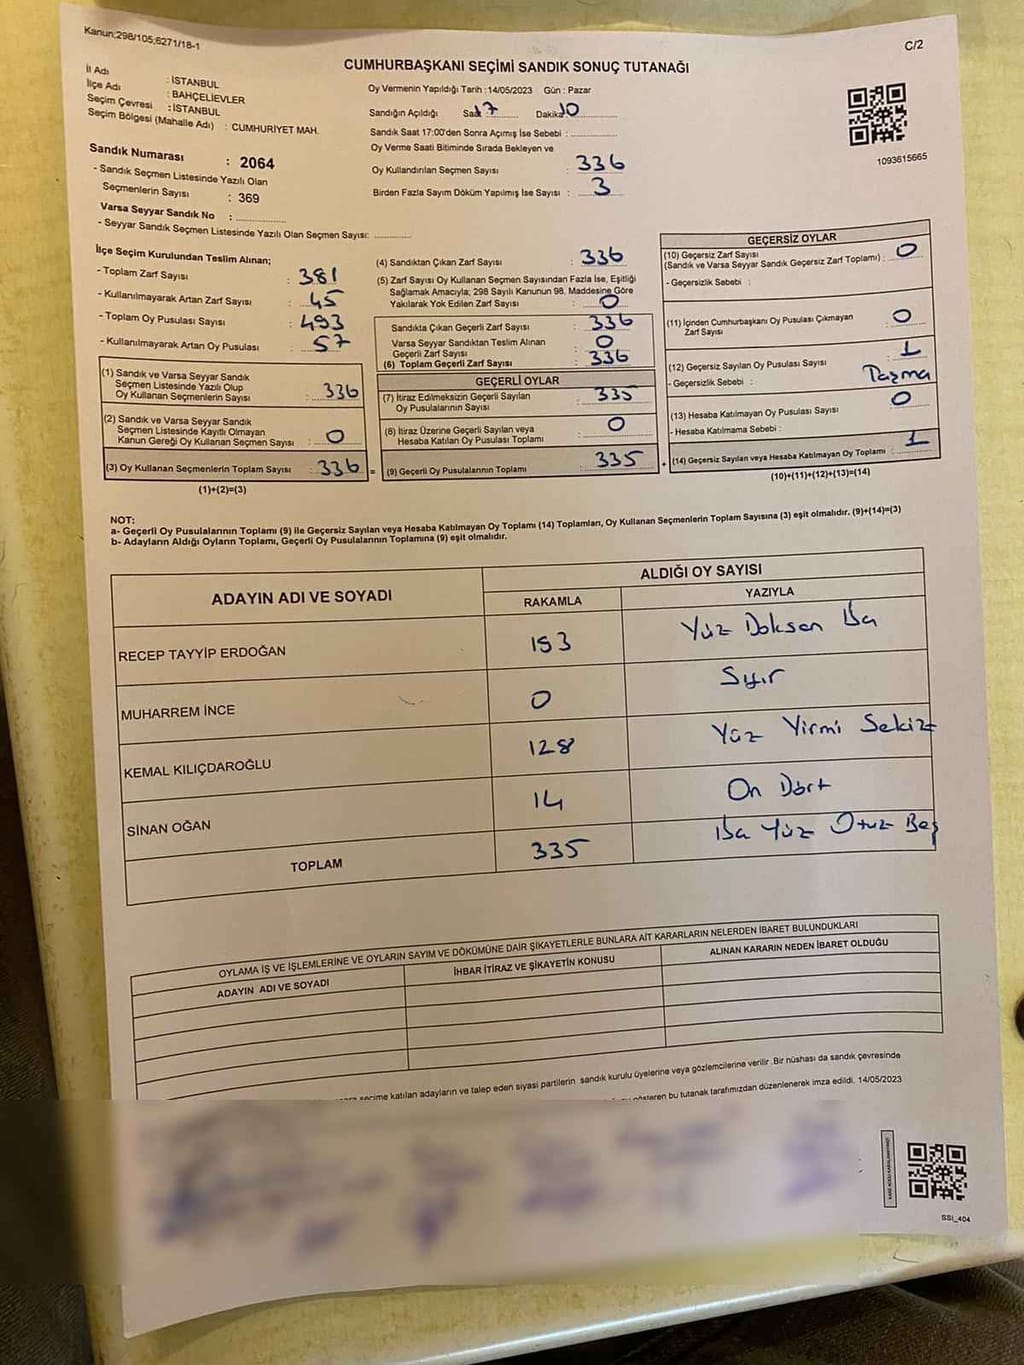 Kanun;298/105;6271/18-1
C/2
CUMHURBAŞKANI SEÇİMİ SANDIK SONUÇ TUTANAĞI
İl Adı : İSTANBUL
İlçe Adı : BAHÇELİEVLER
Seçim Çevresi : İSTANBUL
Seçim Bölgesi (Mahalle Adı) : CUMHURİYET MAH.
Sandık Numarası : 2064
- Sandık Seçmen Listesinde Yazılı Olan
Seçmenlerin Sayısı : 369
Varsa Seyyar Sandık No :
- Seyyar Sandık Seçmen Listesinde Yazılı Olan Seçmen Sayısı:
Oy Vermenin Yapıldığı Tarih :14/05/2023 Gün : Pazar
Sandığın Açıldığı Saat 17 Dakika 10
Sandık Saat 17:00'den Sonra Açımış İse Sebebi :
Oy Verme Saati Bitiminde Sırada Bekleyen ve
Oy Kullandırılan Seçmen Sayısı : 336
Birden Fazla Sayım Döküm Yapılmış İse Sayısı : 3
1093615665
İlçe Seçim Kurulundan Teslim Alınan;
- Toplam Zarf Sayısı : 381
- Kullanılmayarak Artan Zarf Sayısı : 45
- Toplam Oy Pusulası Sayısı : 493
- Kullanılmayarak Artan Oy Pusulası : 57
(1) Sandık ve Varsa Seyyar Sandık
Seçmen Listesinde Yazılı Olup
Oy Kullanan Seçmenlerin Sayısı : 336
(2) Sandık ve Varsa Seyyar Sandık
Seçmen Listesinde Kayıtlı Olmayan
Kanun Gereği Oy Kullanan Seçmen Sayısı : 0
(3) Oy Kullanan Seçmenlerin Toplam Sayısı : 336 =
(1)+(2)=(3)
(4) Sandıktan Çıkan Zarf Sayısı : 336
(5) Zarf Sayısı Oy Kullanan Seçmen Sayısından Fazla İse, Eşitliği
Sağlamak Amacıyla; 298 Sayılı Kanunun 98. Maddesine Göre
Yakılarak Yok Edilen Zarf Sayısı : 0
Sandıkta Çıkan Geçerli Zarf Sayısı : 336
Varsa Seyyar Sandıktan Teslim Alınan
Geçerli Zarf Sayısı : 0
(6) Toplam Geçerli Zarf Sayısı : 336
GEÇERLİ OYLAR
(7) İtiraz Edilmeksizin Geçerli Sayılan
Oy Pusulalarının Sayısı : 335
(8) İtiraz Üzerine Geçerli Sayılan veya
Hesaba Katılan Oy Pusulası Toplamı : 0
(9) Geçerli Oy Pusulalarının Toplamı : 335 +
GEÇERSİZ OYLAR
(10) Geçersiz Zarf Sayısı
(Sandık ve Varsa Seyyar Sandık Geçersiz Zarf Toplamı) : 0
- Geçersizlik Sebebi :
(11) İçinden Cumhurbaşkanı Oy Pusulası Çıkmayan
Zarf Sayısı : 0
(12) Geçersiz Sayılan Oy Pusulası Sayısı : 1
- Geçersizlik Sebebi :
(13) Hesaba Katılmayan Oy Pusulası Sayısı : 0
- Hesaba Katılmama Sebebi :
(14) Geçersiz Sayılan veya Hesaba Katılmayan Oy Toplamı : 1
(10)+(11)+(12)+(13)=(14)
NOT:
a- Geçerli Oy Pusulalarının Toplamı (9) ile Geçersiz Sayılan veya Hesaba Katılmayan Oy Toplamı (14) Toplamları, Oy Kullanan Seçmenlerin Toplam Sayısına (3) eşit olmalıdır. (9)+(14)=(3)
b- Adayların Aldığı Oyların Toplamı, Geçerli Oy Pusulalarının Toplamına (9) eşit olmalıdır.
ADAYIN ADI VE SOYADI ALDIĞI OY SAYISI
RAKAMLA YAZIYLA
RECEP TAYYİP ERDOĞAN 193 Yüz Doksan
MUHARREM İNCE 0 Sıfır
KEMAL KILIÇDAROĞLU 128 Yüz Yirmi Sekiz
SİNAN OĞAN 14 On Dört
TOPLAM 335 Yüz Otuz Beş
OYLAMA İŞ VE İŞLEMLERİNE VE OYLARIN SAYIM VE DÖKÜMÜNE DAİR ŞİKAYETLERLE BUNLARA AİT KARARLARIN NELERDEN İBARET BULUNDUKLARI
ADAYIN ADI VE SOYADI İHBAR İTİRAZ VE ŞİKAYETİN KONUSU ALINAN KARARIN NEDEN İBARET OLDUĞU
seçime katılan adayların ve talep eden siyasi partilerin sandık kurulu üyelerine veya gözlemcilerine verilir .Bir nüshası da sandık çevresinde
bu tutanak tarafımızdan düzenlenerek imza edildi. 14/05/2023
SSİ_404